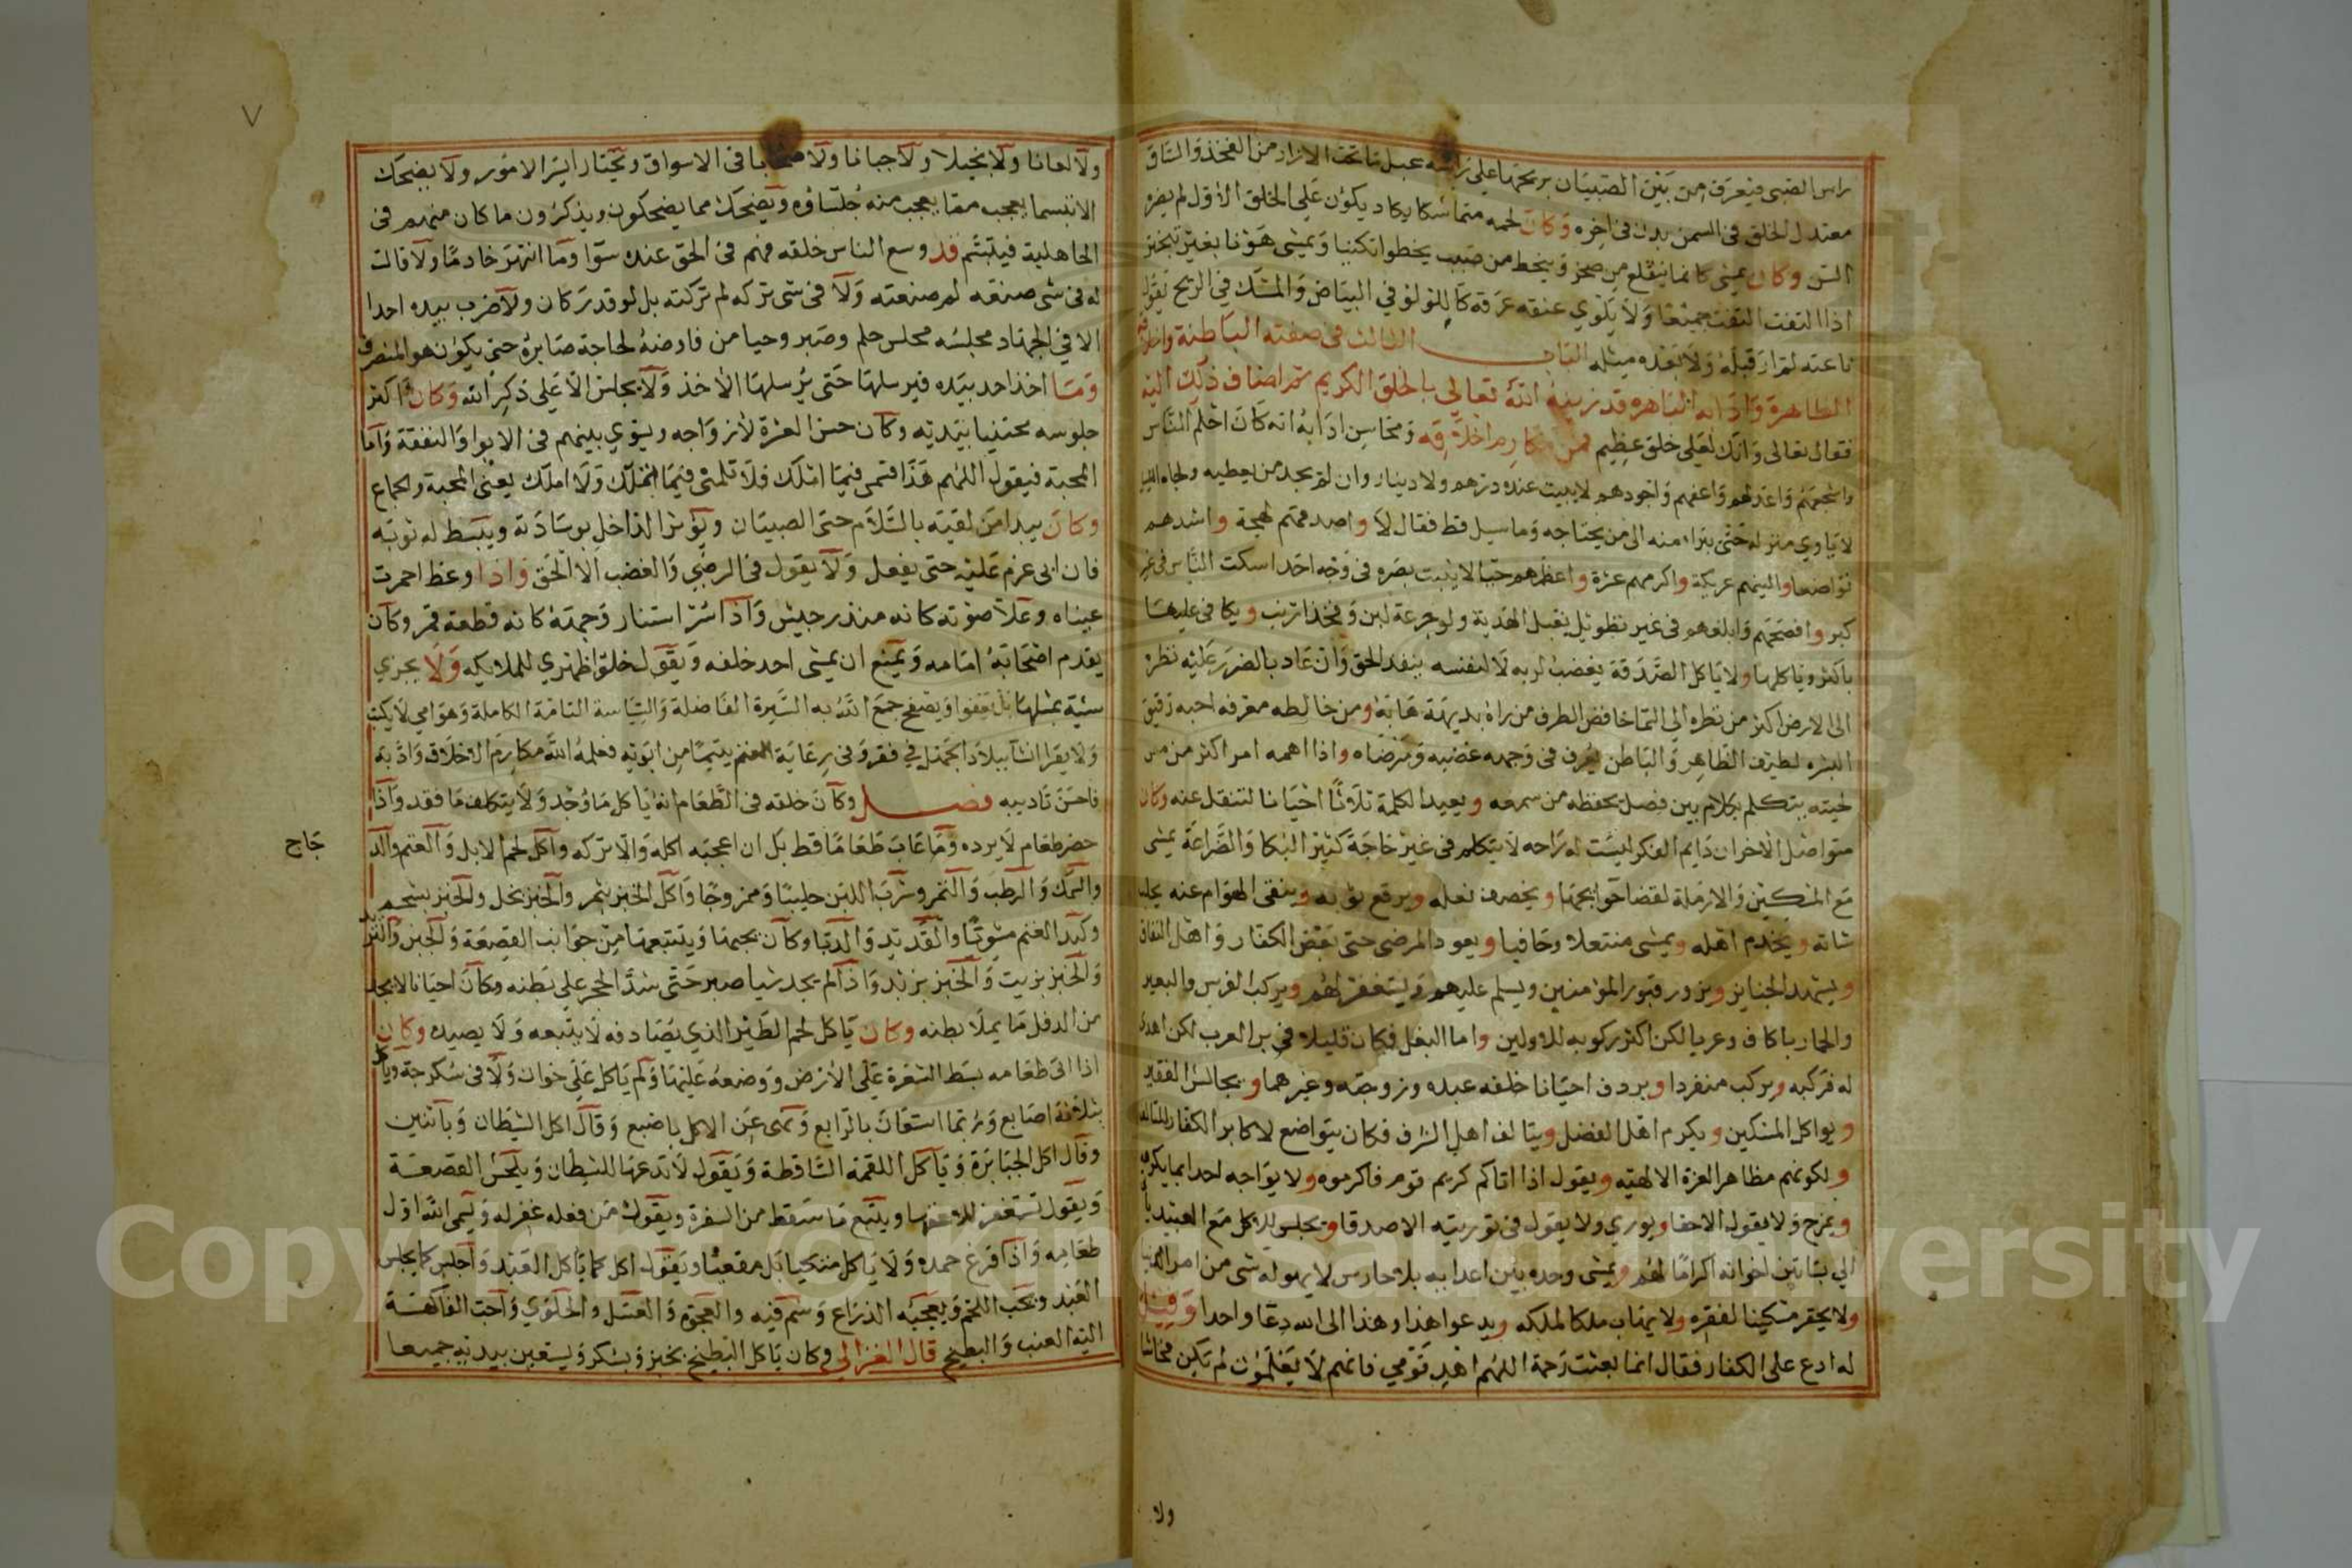 راس الصبي فيعرف من بين الصبيان بريحها على راسه عبل ما تحت الازار من الفخذ والساق
معتدل الخلق في السمن بدن في اخره وكان لحمه متماسكا يكاد يكون على الخلق الاول لم يضره
السن وكان يمشي كانما ينقلع من صخر وينحط من صبب يخطوا تكفيا ويمشي هونا بغير تبختر
اذا التفت التفت جميعا ولا يلوي عنقه عرقه كاللولو في البياض والمسك في الريح يقول
ناعته لم ار قبله ولا بعده مثله الباب الثالث في صفته الباطنة واخلاقه
الطاهرة وادابه الباهره قد زينه الله تعالى بالخلق الكريم ثم اضاف ذلك اليه
فقال تعالى وانك لعلى خلق عظيم فمن مكارم اخلاقه ومحاسن ادابه انه كان احلم الناس
واشجعهم واعدلهم واعفهم واجودهم لا يبيت عنده درهم ولا دينار وان لم يجد من يعطيه ولجاه الليل
لا ياوي منزله حتى يتراء منه الى من يحتاجه وما سيل قط فقال لا واصدقهم لهجة واشدهم
تواضعا والينهم عريكة واكرمهم عشرة واعظمهم حيا لا يثبت بصره في وجه احد اسكت الناس في غير
كبر وافصحهم وابلغهم في غير تطويل يقبل الهدية ولو جرعة لبن وفخذ ارنب ويكافي عليها
باكثر وياكلها ولا ياكل الصدقة يغضب لربه لا لنفسه ينفد الحق وان عاد بالضرر عليه نظره
الى الارض اكثر من نظره الى السما خافض الطرف من راه بديهة هابه ومن خالطه معرفه احبه رقيق
البشره لطيف الظاهر والباطن يعرف في وجهه غضبه ورضاه واذا اهمه امر اكثر من مس
لحيته يتكلم بكلام بين فصل يحفظه من سمعه ويعيد الكلمة ثلاثا احيانا لتنقل عنه وكان
متواصل الاحزان دايم الفكر ليست له راحه لا يتكلم في غير حاجة كثير البكا والضراعة يمشي
مع المسكين والارملة لقضا حوايجها ويخصف نعله ويرقع ثوبه وينقي الهوام عنه يحلب
شاته ويخدم اهله ويمشي منتعلا وحافيا ويعود المرضى حتى بعض الكفار واهل النفاق
ويشهد الجنايز ويزور قبور المومنين ويسلم عليهم ويستغفر لهم ويركب الفرس والبعير
والحمار باكاف وعريا لكن اكثر ركوبه للاولين واما البغل فكان قليلا في بر العرب لكن اهدى
له فركبه ويركب منفردا ويردف احيانا خلفه عبده وزوجته وغيرهما ويجالس الفقير
ويواكل المسكين ويكرم اهل الفضل ويتالف اهل الشرف فكان يتواضع لاكابر الكفار للتالف
ولكونهم مظاهر العزة الالهيه ويقول اذا اتاكم كريم قوم فاكرموه ولا يواجه احدا بما يكره
ويمزح ولا يقول الا حقا ويوري ولا يقول في توريته الا صدقا ويجلس للاكل مع العبيد
الى بساتين اخوانه اكراما لهم ويمشي وحده بين اعدايه بلا حارس لا يهوله شي من امر الدنيا
ولا يحقر مسكينا لفقره ولا يهاب ملكا لملكه ويدعوا هذا وهذا الى الله دعا واحدا وقيل
له ادع على الكفار فقال انما بعثت رحمة اللهم اهد قومي فانهم لا يعلمون لم يكن فحاشا
ولا
٧
ولا لعانا ولا بخيلا ولا جبانا ولا صخابا في الاسواق ويختار ايسر الامور ولا يضحك
الا تبسما يعجب مما يعجب منه جلساوه ويضحك مما يضحكون ويذكرون ما كان منهم في
الجاهلية فيتبسم قد وسع الناس خلقه فهم في الحق عنده سوا وما انتهر خادما ولا قال
له في شي صنعه لم صنعته ولا في شي تركه لم تركته بل لو قدر كان ولا ضرب بيده احدا
الا في الجهاد مجلسه مجلس حلم وصبر وحيا من فاوضه لحاجة صابره حتى يكون هو المنصرف
وما اخذ احد بيده فيرسلها حتى يرسلها الاخذ ولا يجلس الا على ذكر الله وكان اكثر
جلوسه محتبيا بيديه وكان حسن العشرة لازواجه ويسوي بينهم في الايوا والنفقة واما
المحبة فيقول اللهم هذا قسمي فيما املك فلا تلمني فيما تملك ولا املك يعني المحبة والجماع
وكان يبدا من لقيه بالسلام حتى الصبيان ويوثر الداخل بوسادته ويبسط له ثوبه
فان ابى عزم عليه حتى يفعل ولا يقول في الرضي والغضب الا الحق واذا وعظ احمرت
عيناه وعلا صوته كانه منذر جيش واذا سر استنار وجهه كانه قطعة قمر وكان
يقدم اصحابه امامه ويمنع ان يمشي احد خلفه ويقول خلوا ظهري للملايكه ولا يجزي
سيئة بمثلها بل يعفوا ويصفح جمع الله به السيرة الفاضلة والسياسة التامة الكاملة وهو امي لا يكتب
ولا يقرا نشا ببلاد الجهل في فقر وفي رعاية الغنم يتيما من ابويه فعلمه الله مكارم الاخلاق وادبه
فاحسن تاديبه فصل وكان خلقه في الطعام انه ياكل ما وجد ولا يتكلف ما فقد واذا
حضر طعام لا يرده وما عاب طعاما قط بل ان اعجبه اكله والا تركه واكل لحم الابل والغنم والد
جاج
والسمك والرطب والتمر وشرب اللبن حليبا وممزوجا واكل الخبز بتمر والخبز بخل والخبز بشحم
وكبد الغنم مشويا والقديد والدبا وكان يحبها ويتتبعها من جوانب القصعة والجبن والثريد
والخبز بزيت والخبز بزبد واذا لم يجد شيا صبر حتى شد الحجر على بطنه وكان احيانا لا يجد
من الدقل ما يملا بطنه وكان ياكل لحم الطير الذي يصاد فه لا يتبعه ولا يصيده وكان
اذا اتى طعامه بسط السفرة على الارض ووضعه عليها ولم ياكل على خوان ولا في سكرجة وياكل
بثلاثة اصابع وربما استعان بالرابع ونهى عن الاكل باصبع وقال اكل الشيطان وباثنين
وقال اكل الجبابرة وياكل اللقمة الساقطة ويقول لا تدعها للشيطان ويلحس القصعة
ويقول تستغفر للاعقها ويلتقم ما سقط من السفرة ويقول من فعله غفر له ويسمي الله اول
طعامه واذا فرغ حمده ولا ياكل متكيا بل مقعيا ويقول اكل كما ياكل العبد واجلس كما يجلس
العبد ويحب اللحم ويعجبه الذراع وسم فيه والعجوة والعسل والحلوي واحب الفاكهة
اليه العنب والبطيخ قال الغزالي وكان ياكل البطيخ بخبز وبسكر ويستعين بيديه جميعا
Copyright © King Saud University